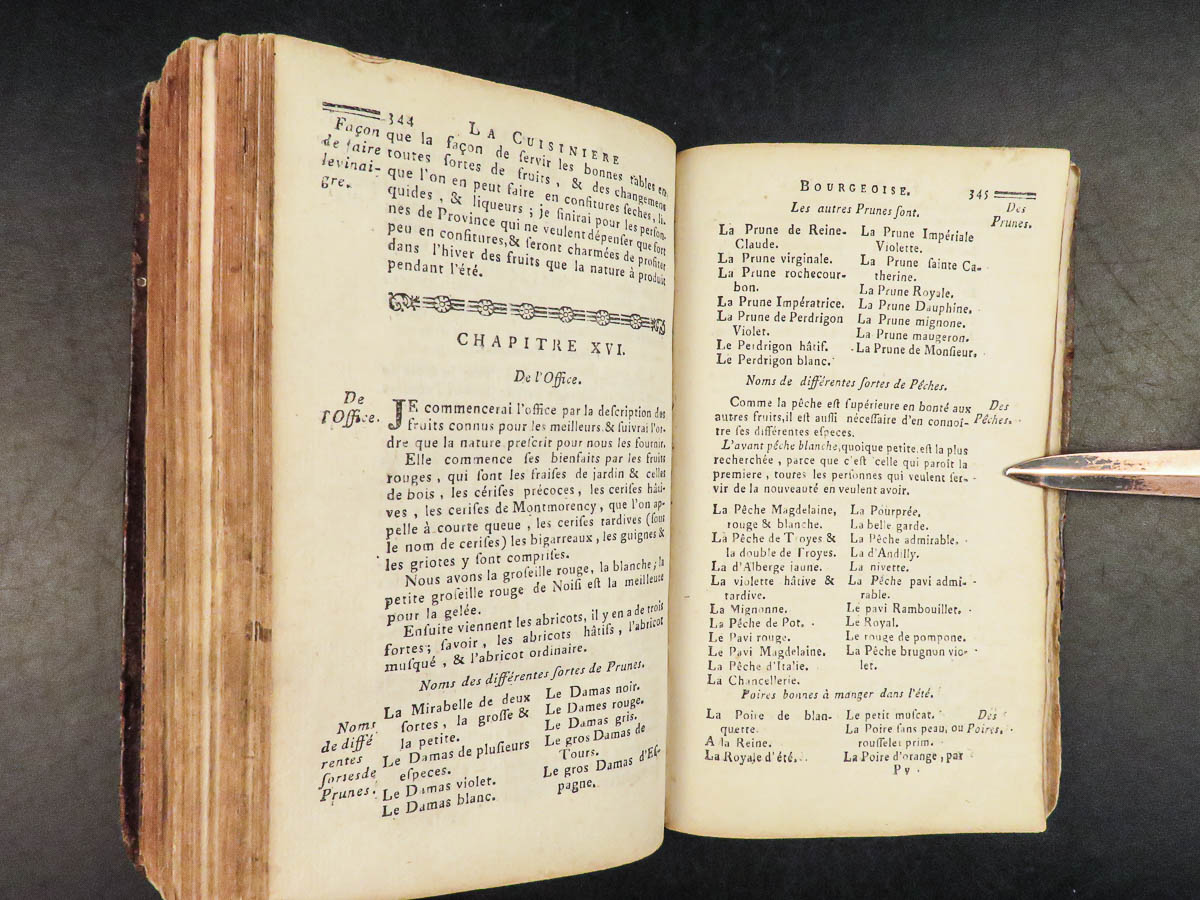 344 LA CUISINIERE
Façon
de faire
levinai-
gre.
que la façon de ſervir les bonnes tables en
toutes ſortes de fruits, & des changemens
que l'on en peut faire en confitures ſeches, li-
quides, & liqueurs ; je finirai pour les perſon-
nes de Province qui ne veulent dépenſer que fort
peu en confitures,& ſeront charmées de profiter
dans l'hiver des fruits que la nature à produit
pendant l'été.
CHAPITRE XVI.
De l'Office.
De
l'Office.
JE commencerai l'office par la deſcription des
fruits connus pour les meilleurs.& ſuivrai l'or-
dre que la nature preſcrit pour nous les fournir.
Elle commence ſes bienfaits par les fruits
rouges, qui ſont les fraiſes de jardin & celles
de bois, les cériſes précoces, les ceriſes hâti-
ves, les ceriſes de Montmorency, que l'on ap-
pelle à courte queue, les ceriſes tardives (ſous
le nom de ceriſes) les bigarreaux, les guignes &
les griotes y ſont compriſes.
Nous avons la groſeille rouge, la blanche; la
petite groſeille rouge de Noiſi eſt la meilleure
pour la gelée.
Enſuite viennent les abricots, il y en a de trois
ſortes; ſavoir, les abricots hâtiſs, l'abricot
muſqué, & l'abricot ordinaire.
Noms des différentes ſortes de Prunes.
Noms
de diffé
rentes
ſortesde
Prunes.
La Mirabelle de deux
ſortes, la groſſe &
la petite.
Le Damas de pluſieurs
eſpeces.
Le Damas violet.
Le Damas blanc.
Le Damas noir.
Le Dames rouge.
Le Damas gris.
Le gros Damas de
Tours.
Le gros Damas d'Eſ-
pagne.
BOURGEOISE. 345
Les autres Prunes ſont.
Des
Prunes.
La Prune de Reine-
Claude.
La Prune virginale.
La Prune rochecour-
bon.
La Prune Impératrice.
La Prune de Perdrigon
Violet.
Le Perdrigon hâtif.
Le Perdrigon blanc.
La Prune Impériale
Violette.
La Prune ſainte Ca-
therine.
La Prune Royale.
La Prune Dauphine.
La Prune mignone.
La Prune maugeron.
La Prune de Monſieur.
Noms de différentes ſortes de Pêches.
Des
Pêches.
Comme la pêche eſt ſupérieure en bonté aux
autres fruits,il eſt auſſi néceſſaire d'en connoi-
tre ſes différentes eſpeces.
L'avant pêche blanche,quoique petite.eſt la plus
recherchée, parce que c'eſt celle qui paroît la
premiere, toures les perſonnes qui veulent ſer-
vir de la nouveauté en veulent avoir.
La Pêche Magdelaine,
rouge & blanche.
La Pêche de Troyes &
la double de Troyes.
La d'Alberge jaune.
La violette hâtive &
tardive.
La Mignonne.
La Pêche de Pot.
Le Pavi rouge.
Le Pavi Magdelaine.
La Pêche d'Italie.
La Chancellerie.
La Pourprée.
La belle garde.
La Pêche admirable.
La d'Andilly.
La nivette.
La Pêche pavi admi-
rable.
Le pavi Rambouillet.
Le Royal.
Le rouge de pompone.
La Pêche brugnon vio-
let.
Poires bonnes à manger dans l'été.
Des
Poires.
La Poire de blan-
quette.
A la Reine.
La Royale d'été.
Le petit muſcat.
La Poire ſans peau, ou
rouſſelet prim.
La Poire d'orange, par
P v